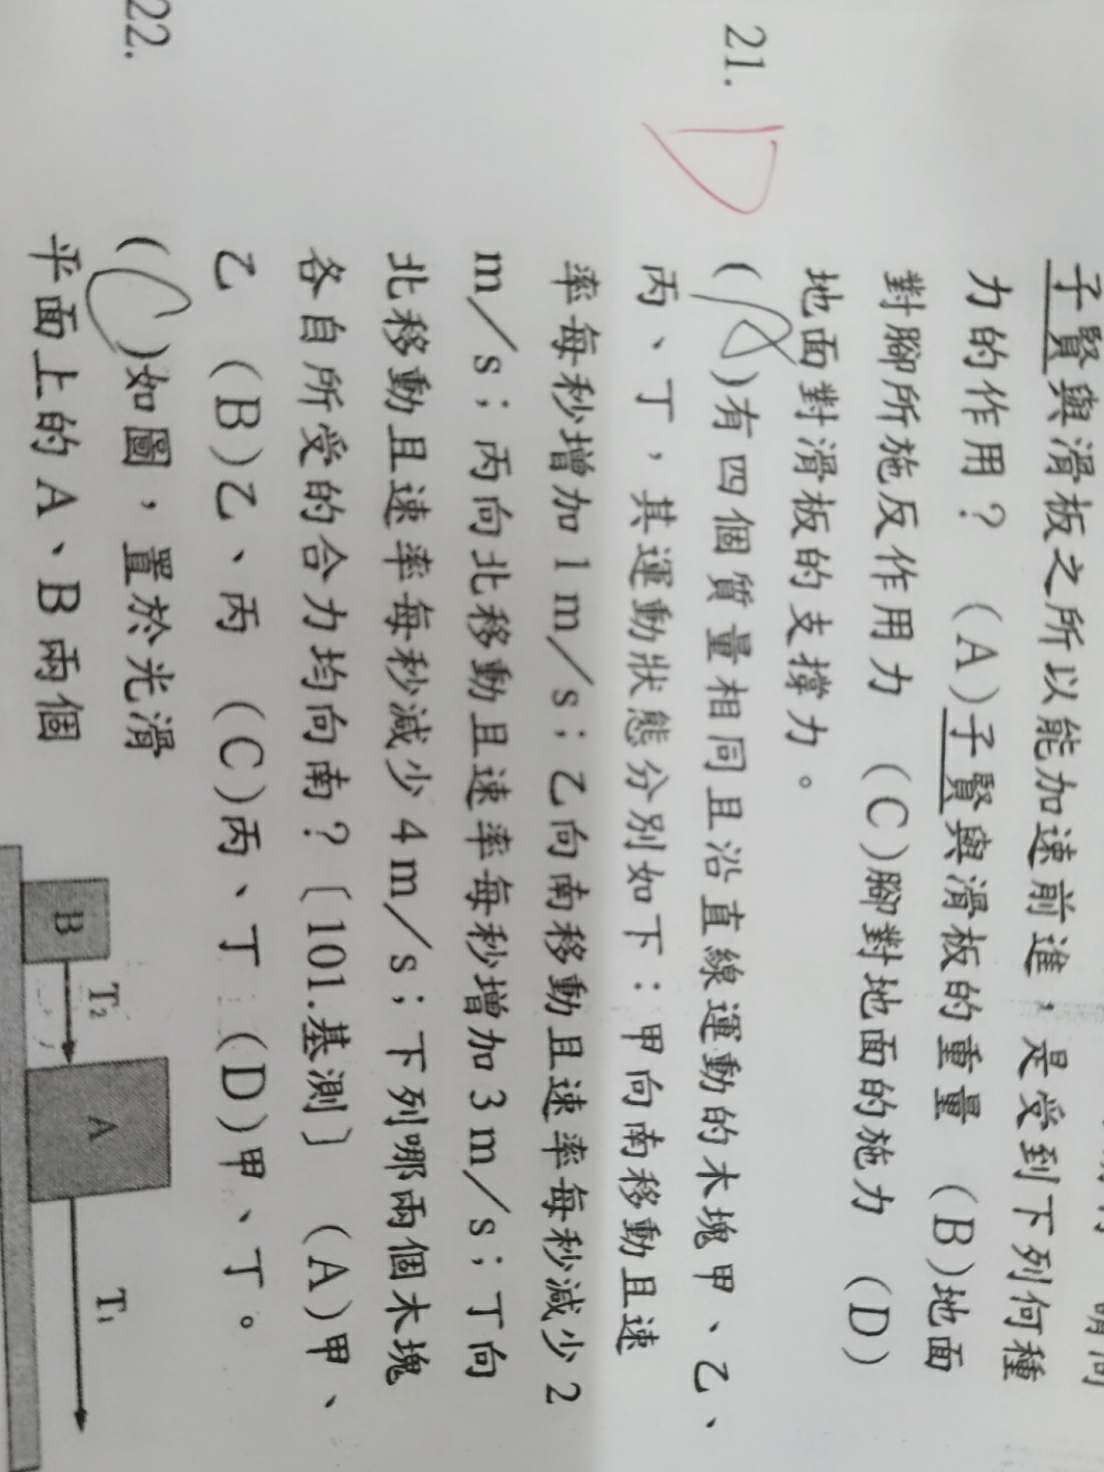 子賢與滑板之所以能加速前進，是受到下列何種
力的作用？ (A)子賢與滑板的重量 (B)地面
對腳所施反作用力 (C)腳對地面的施力 (D)
地面對滑板的支撐力。
21. D ( )有四個質量相同且沿直線運動的木塊甲、乙、
丙、丁，其運動狀態分別如下：甲向南移動且速
率每秒增加1m／s；乙向南移動且速率每秒減少2
m／s；丙向北移動且速率每秒增加3m／s；丁向
北移動且速率每秒減少4m／s；下列哪兩個木塊
各自所受的合力均向南？〔101.基測〕 (A)甲、
乙 (B)乙、丙 (C)丙、丁 (D)甲、丁。
22. (C)如圖，置於光滑
平面上的A、B兩個
B T₂ A T₁